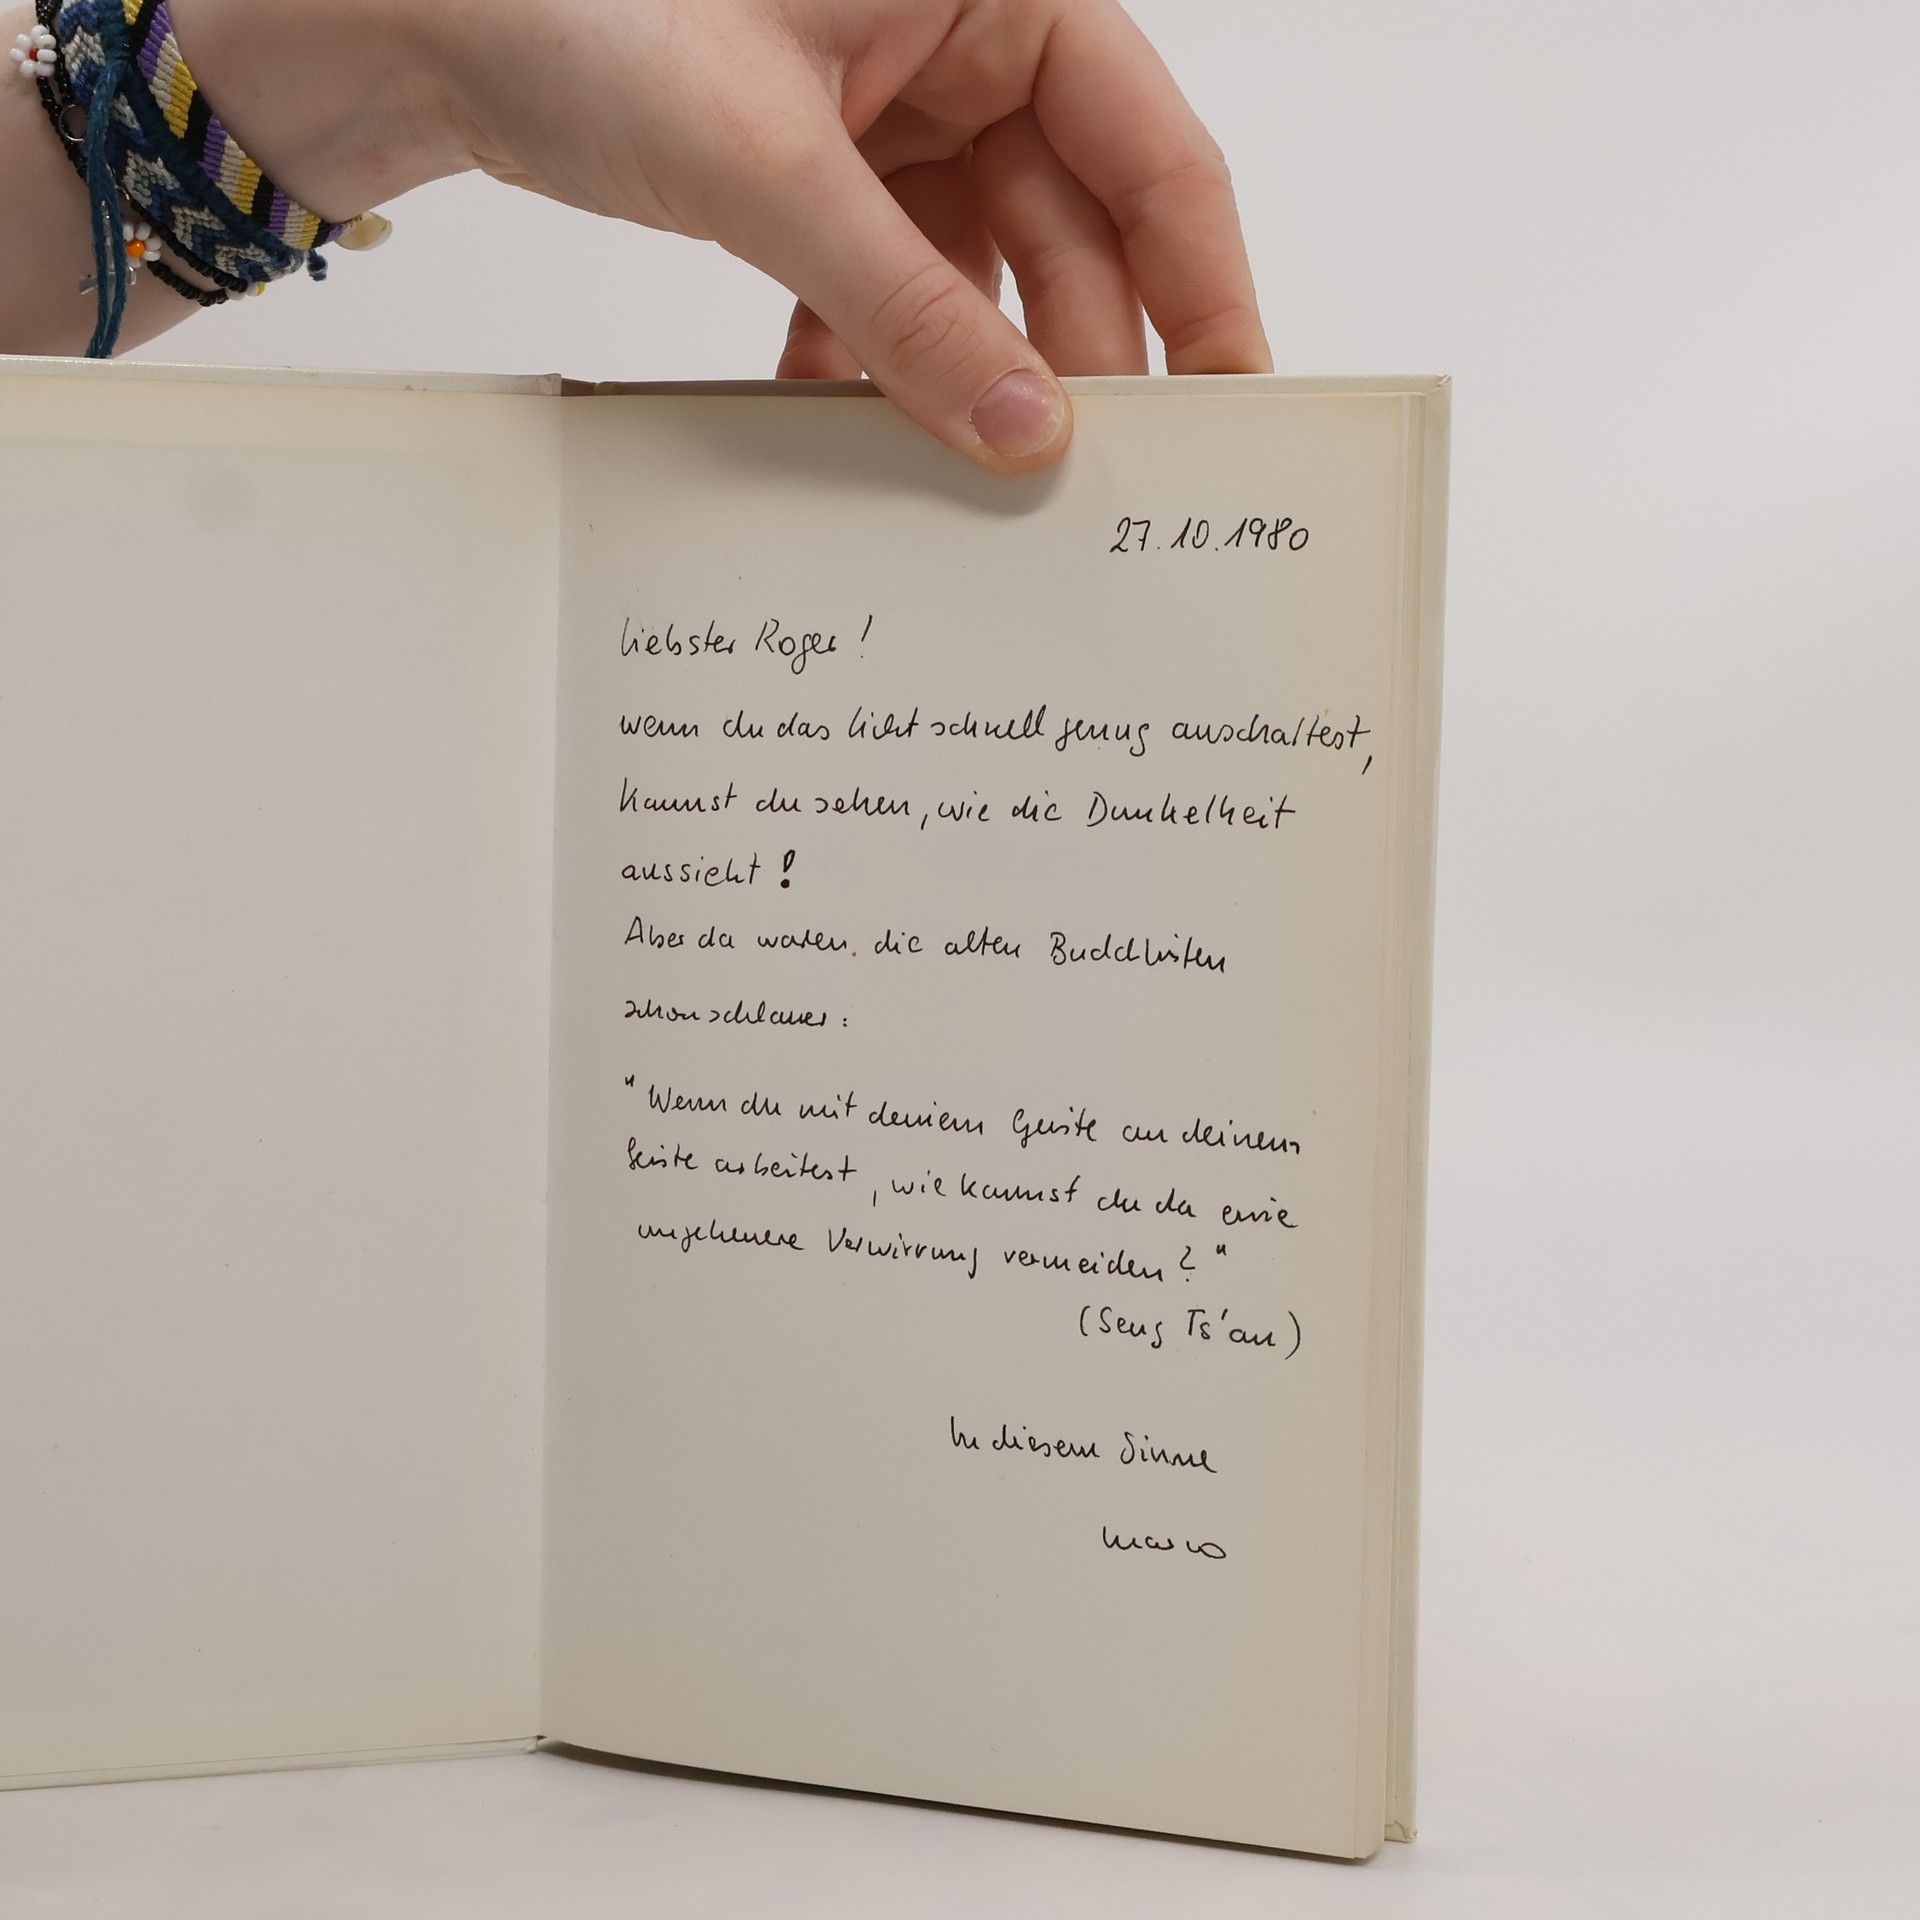 27.10.1980
liebster Roger!
wenn du das licht schnell genug anschaltest,
kannst du sehen, wie die Dunkelheit
aussieht!
Aber da waren die alten Buddhisten
schon schlauer:
"Wenn du mit deinem Geiste an deinem
Geiste arbeitest, wie kannst du da eine
ungeheuere Verwirrung vermeiden?"
(Seng Ts'an)
In diesem Sinne